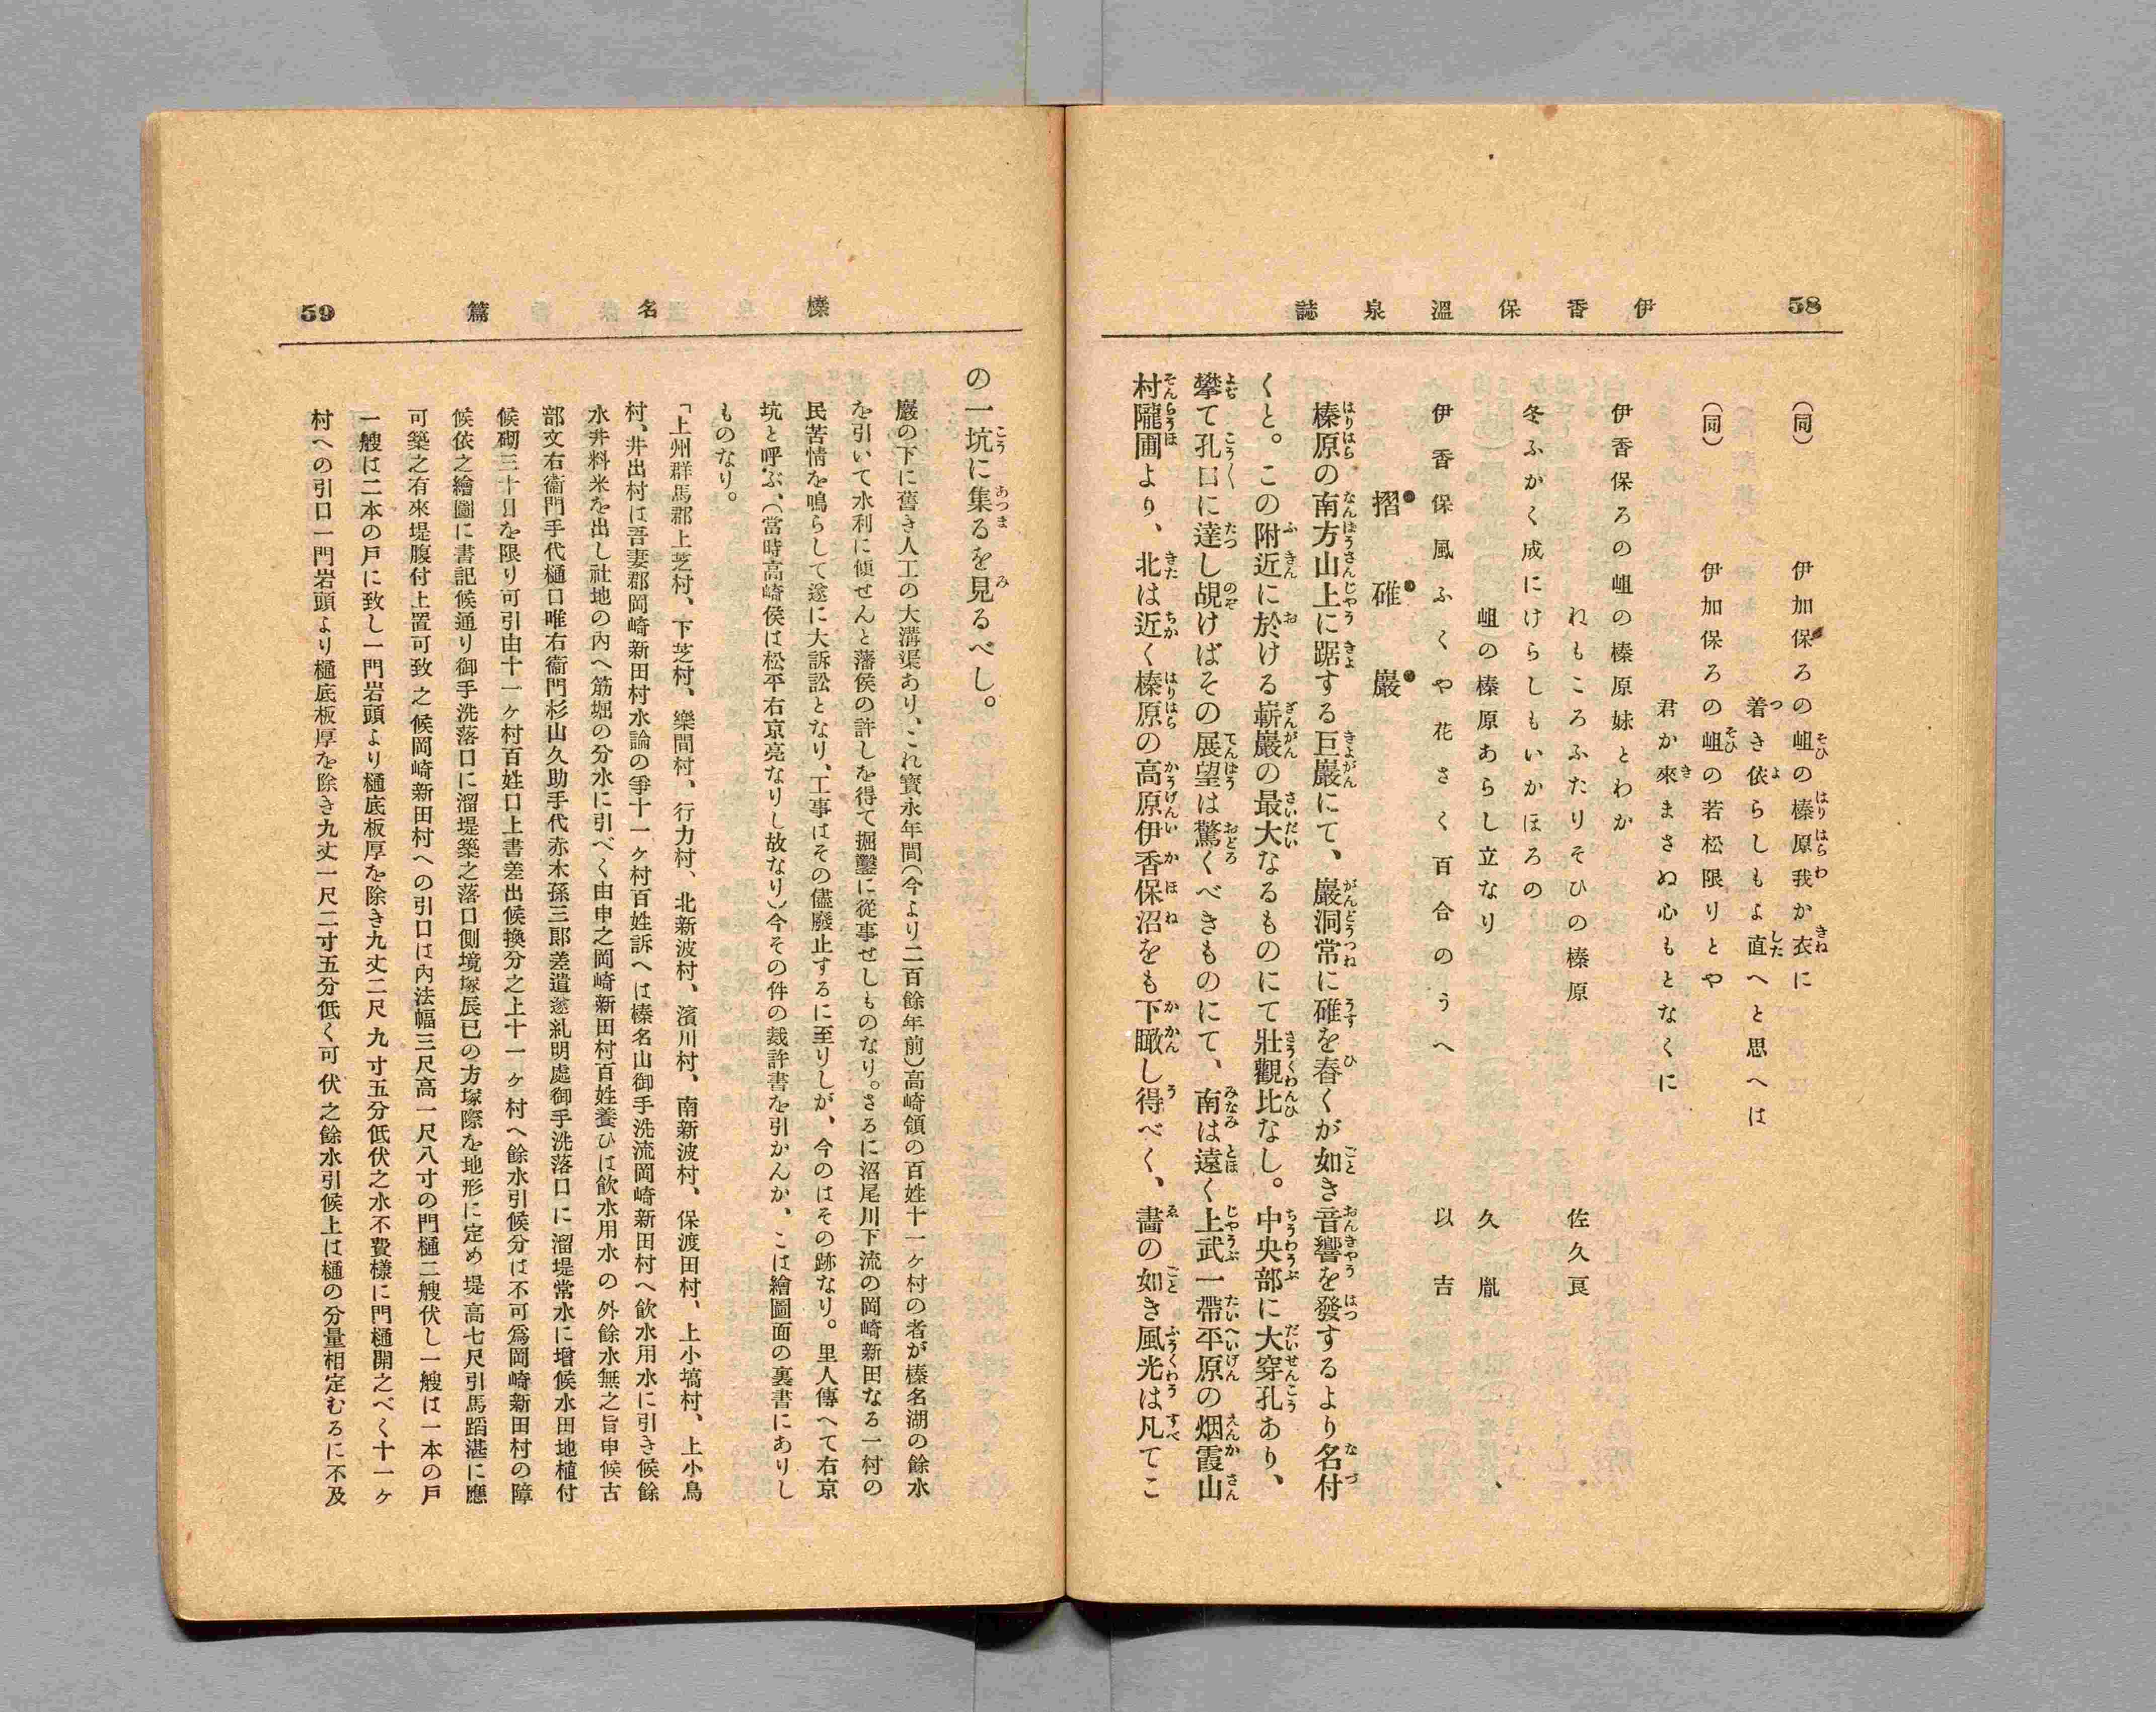 58
伊香保溫泉誌
(同) 伊加保ろの岨の榛原我か衣に
着き依らしもよ直へと思へは
(同) 伊加保ろの岨の若松限りとや
君か來まさぬ心もとなくに
伊香保ろの岨の榛原妹とわか
れもころふたりそひの榛原 佐久良
冬ふかく成にけらしもいかほろの
岨の榛原あらし立なり 久胤
伊香保風ふくや花さく百合のうへ 以吉
摺碓巖
榛原の南方山上に踞する巨巖にて、巖洞常に碓を舂くが如き音響を發するより名付
くと。この附近に於ける嶄巖の最大なるものにて壯觀比なし。中央部に大穿孔あり、
攀て孔口に達し覘けばその展望は驚くべきものにて、南は遠く上武一帶平原の烟霞山
村隴圃より、北は近く榛原の高原伊香保沼をも下瞰し得べく、畵の如き風光は凡てこ
榛名篇
59
の一坑に集るを見るべし。
巖の下に舊き人工の大溝渠あり、これ寳永年間(今より二百餘年前)高崎領の百姓十一ヶ村の者が榛名湖の餘水
を引いて水利に傾せんと藩侯の許しを得て掘鑿に從事せしものなり。さるに沼尾川下流の岡崎新田なる一村の
民苦情を鳴らして遂に大訴訟となり、工事はその儘廢止するに至りしが、今のはその跡なり。里人傳へて右京
坑と呼ぶ、(當時高崎侯は松平右京亮なりし故なり)今その件の裁許書を引かんか、こは繪圖面の裏書にありし
ものなり。
「上州群馬郡上芝村、下芝村、樂間村、行力村、北新波村、濱川村、南新波村、保渡田村、上小塙村、上小鳥
村、井出村は吾妻郡岡崎新田村水論の爭十一ヶ村百姓訴へは榛名山御手洗流岡崎新田村へ飮水用水に引き候餘
水井料米を出し社地の內へ筋堀の分水に引べく由申之岡崎新田村百姓養ひは飮水用水の外餘水無之旨申候古
部文右衞門手代樋口唯右衞門杉山久助手代赤木孫三郎差遣遂糺明處御手洗落口に溜堤常水に增候水田地植付
候砌三十日を限り可引由十一ヶ村百姓口上書差出候換分之上十一ヶ村へ餘水引候分は不可爲岡崎新田村の障
候依之繪圖に書記候通り御手洗落口に溜堤築之落口側境塚辰巳の方塚際を地形に定め堤高七尺引馬蹈湛に應
可築之有來堤腹付上置可致之候岡崎新田村への引口は內法幅三尺高一尺八寸の門樋二艘伏し一艘は一本の戸
一艘は二本の戸に致し一門岩頭より樋底板厚を除き九丈二尺九寸五分低伏之水不費樣に門樋開之べく十一ヶ
村への引口一門岩頭より樋底板厚を除き九丈一尺二寸五分低く可伏之餘水引候上は樋の分量相定むるに不及